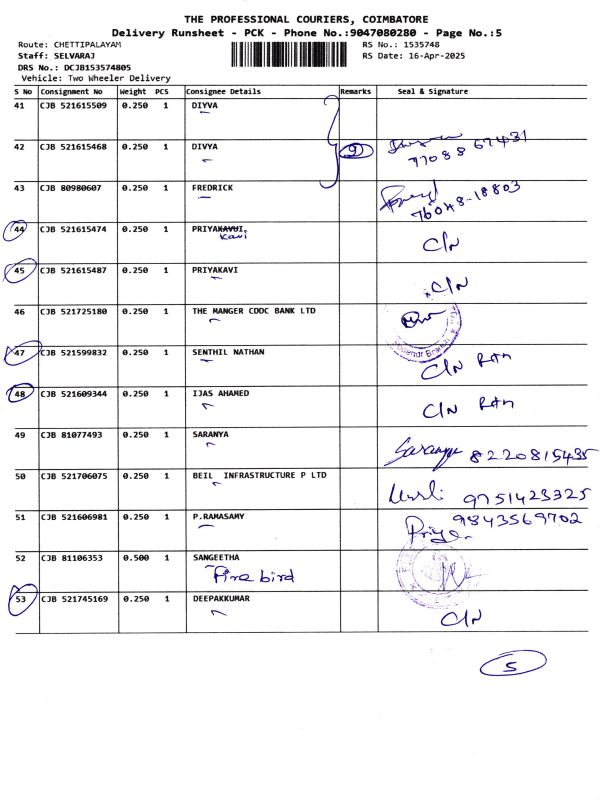 THE PROFESSIONAL COURIERS, COIMBATORE
Delivery Runsheet - PCK - Phone No.:9047080280 - Page No.:5
Route: CHETTIPALAYAM RS No.: 1535748
Staff: SELVARAJ RS Date: 16-Apr-2025
DRS No.: DCJB153574805
Vehicle: Two Wheeler Delivery
S No Consignment No Weight PCS Consignee Details Remarks Seal & Signature
41 CJB 521615509 0.250 1 DIYVA
42 CJB 521615468 0.250 1 DIVYA 9 77088 67431
43 CJB 80980607 0.250 1 FREDRICK 76048-18803
44 CJB 521615474 0.250 1 PRIYAKAVUI C/N
Kavi
45 CJB 521615487 0.250 1 PRIYAKAVI C/N
46 CJB 521725180 0.250 1 THE MANGER CDDC BANK LTD
47 CJB 521599832 0.250 1 SENTHIL NATHAN C/N
48 CJB 521609344 0.250 1 IJAS AHAMED C/N
49 CJB 81077493 0.250 1 SARANYA Saranya 8220815435
50 CJB 521706075 0.250 1 BEIL INFRASTRUCTURE P LTD 9751423325
51 CJB 521606981 0.250 1 P.RAMASAMY Priya 9843569702
52 CJB 81106353 0.500 1 SANGEETHA
Fire bird
53 CJB 521745169 0.250 1 DEEPAKKUMAR C/N
5